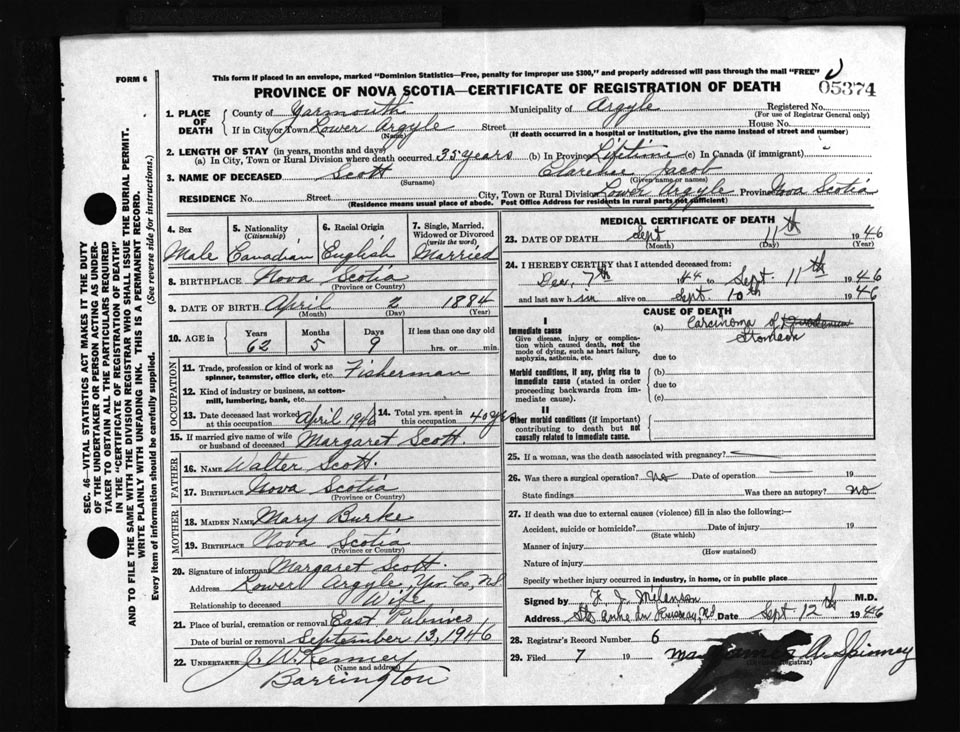 This form if placed in an envelope, marked "Dominion Statistics—Free, penalty for improper use $300," and properly addressed will pass through the mail "FREE"
FORM 6
PROVINCE OF NOVA SCOTIA—CERTIFICATE OF REGISTRATION OF DEATH
05374
1. PLACE OF DEATH
County of Yarmouth Municipality of Argyle Registered No.
(For use of Registrar General only)
If in City or Town Lower Argyle Street House No.
(Name) (If death occurred in a hospital or institution, give the name instead of street and number)
2. LENGTH OF STAY (in years, months and days)
(a) In City, Town or Rural Division where death occurred 35 years (b) In Province Lifetime (c) In Canada (if immigrant)
3. NAME OF DECEASED Scott Clarence Jacob
(Surname) (Given name or names)
RESIDENCE No. Street City, Town or Rural Division Lower Argyle Province Nova Scotia
(Residence means usual place of abode. Post Office Address for residents in rural parts not sufficient)
4. Sex 5. Nationality (Citizenship) 6. Racial Origin 7. Single, Married, Widowed or Divorced (write the word)
Male Canadian English Married
8. BIRTHPLACE Nova Scotia
(Province or Country)
9. DATE OF BIRTH April 2 1884
(Month) (Day) (Year)
10. AGE in Years Months Days If less than one day old
62 5 9 hrs. or min.
OCCUPATION
11. Trade, profession or kind of work as spinner, teamster, office clerk, etc. Fisherman
12. Kind of industry or business, as cotton-mill, lumbering, bank, etc.
13. Date deceased last worked at this occupation April 1946 14. Total yrs. spent in this occupation 40 yrs
15. If married give name of wife or husband of deceased Margaret Scott.
FATHER
16. NAME Walter Scott.
17. BIRTHPLACE Nova Scotia
(Province or Country)
MOTHER
18. MAIDEN NAME Mary Burke
19. BIRTHPLACE Nova Scotia
(Province or Country)
20. Signature of informant Margaret Scott.
Address Lower Argyle, Yar. Co, NS
Relationship to deceased Wife
21. Place of burial, cremation or removal East Pubnico
Date of burial or removal September 13, 1946
22. UNDERTAKER J. W. Kenney
(Name and address)
Barrington
MEDICAL CERTIFICATE OF DEATH
23. DATE OF DEATH Sept 11th 1946
(Month) (Day) (Year)
24. I HEREBY CERTIFY that I attended deceased from:
Dec, 7th 1944 to Sept. 11th 1946
and last saw him alive on Sept. 10th 1946
CAUSE OF DEATH
I
Immediate cause (a) Carcinoma of
Stomach
Give disease, injury or complication which caused death, not the mode of dying, such as heart failure, asphyxia, asthenia, etc.
due to
Morbid conditions, if any, giving rise to immediate cause (stated in order proceeding backwards from immediate cause).
(b)
due to
(c)
II
Other morbid conditions (if important) contributing to death but not causally related to immediate cause.
25. If a woman, was the death associated with pregnancy?
26. Was there a surgical operation? No Date of operation 19
State findings Was there an autopsy? No
27. If death was due to external causes (violence) fill in also the following:—
Accident, suicide or homicide? Date of injury 19
(State which)
Manner of injury
(How sustained)
Nature of injury
Specify whether injury occurred in industry, in home, or in public place
Signed by F. J. Melanson M.D.
Address Ste Anne du Ruisseau, NS Date Sept 12th 1946
28. Registrar's Record Number 6
29. Filed 7 19 James A. Spinney
SEC. 46—VITAL STATISTICS ACT MAKES IT THE DUTY
OF THE UNDERTAKER OR PERSON ACTING AS UNDER-
TAKER TO OBTAIN ALL THE PARTICULARS REQUIRED
IN THE "CERTIFICATE OF REGISTRATION OF DEATH"
AND TO FILE THE SAME WITH THE DIVISION REGISTRAR WHO SHALL ISSUE THE BURIAL PERMIT.
WRITE PLAINLY WITH UNFADING INK. THIS IS A PERMANENT RECORD.
Every item of information should be carefully supplied. (See reverse side for instructions.)